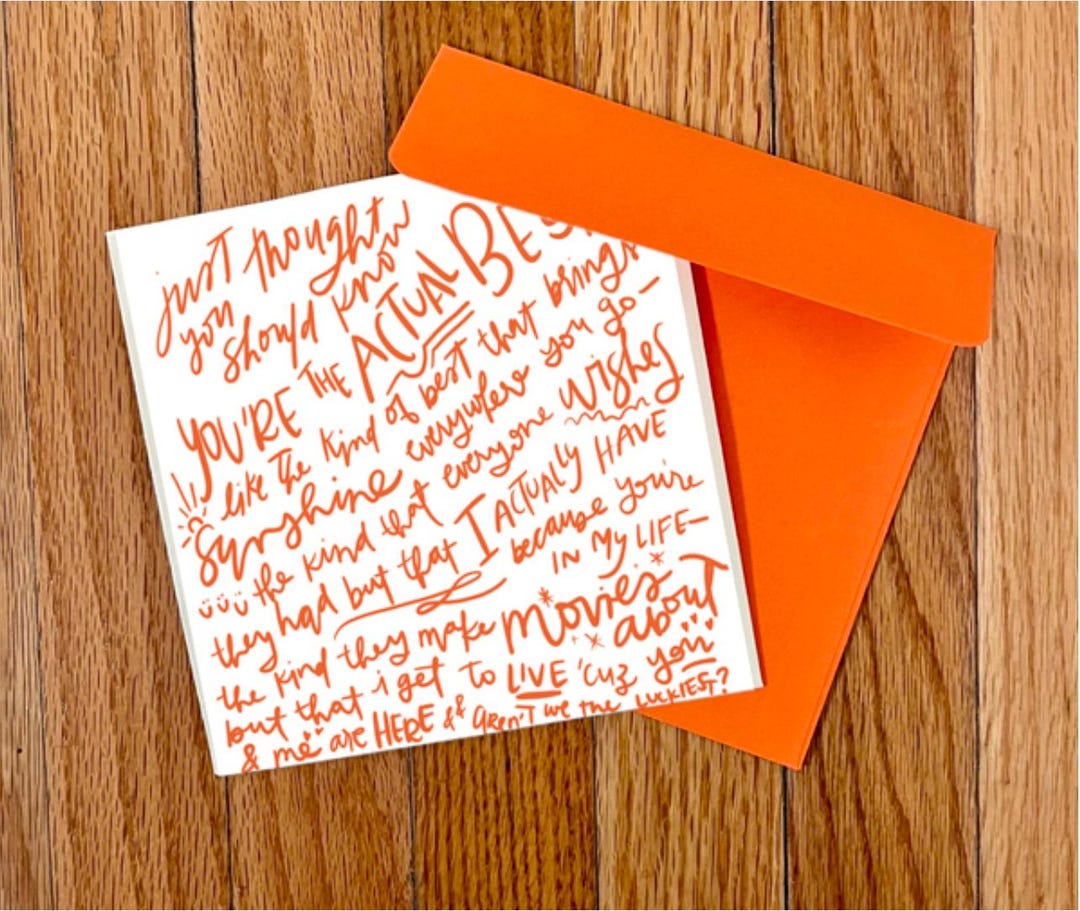 just thought
you should know
YOU'RE THE ACTUAL BEST
like the kind of best that brings
sunshine everywhere you go–
the kind that everyone wishes
they had but that I ACTUALLY HAVE
because you're
IN MY LIFE–
the kind they make movies about
but that i get to LIVE 'cuz you
& me are HERE && aren't we the LUCKIEST?